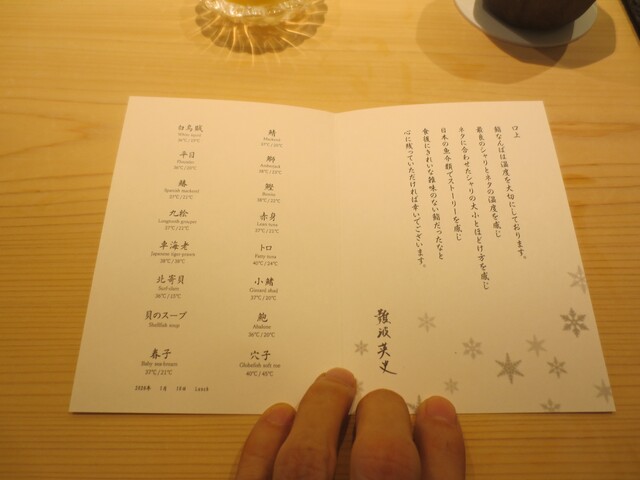 白烏賊
36℃/17℃
平目
Flounder
36℃/20℃
鰆
Spanish mackerel
37℃/21℃
九絵
Longtooth grouper
37℃/21℃
車海老
Japanese tiger prawn
38℃/38℃
北寄貝
Surf clam
36℃/23℃
貝のスープ
Shellfish soup
春子
Baby sea bream
37℃/21℃
鯖
Mackerel
鰤
Amberjack
鰹
Bonito
赤身
Lean tuna
37℃/21℃
トロ
Fatty tuna
40℃/24℃
小鰭
Gizzard shad
37℃/20℃
鮑
Abalone
36℃/20℃
穴子
40℃/45℃
口上
鮨なんばは温度を大切にしております。
最良のシャリとネタの温度を感じ
ネタに合わせたシャリの大小とほどけ方を感じ
日本の魚今類でストーリーを感じ
食後にきれいな雑味のない鮨だったなと
心に残っていただければ幸いでございます。
難波英史